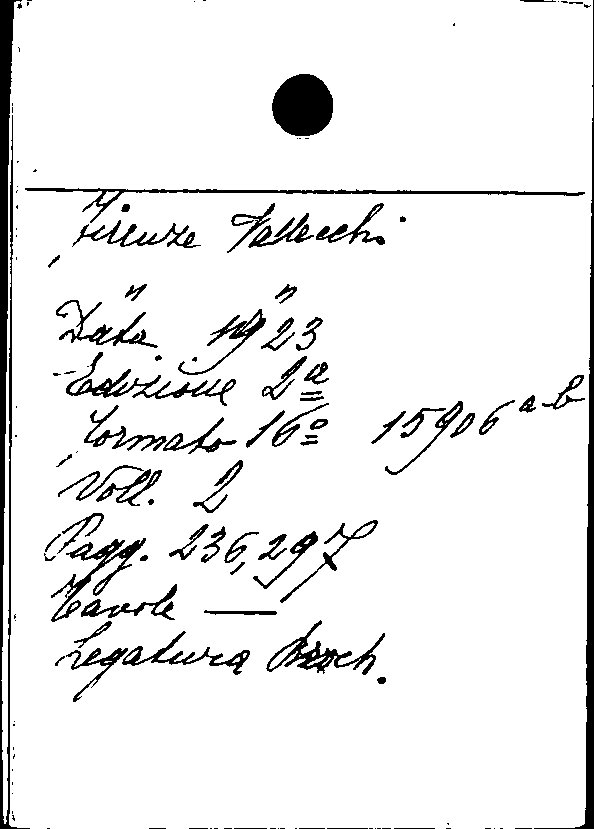 Firenze Vallecchi
" "
Data 1923
Edizione 2ª
Formato 16º 15906 a-b
Voll. 2
Pagg. 236, 297
Tavole —
Legatura Broch.